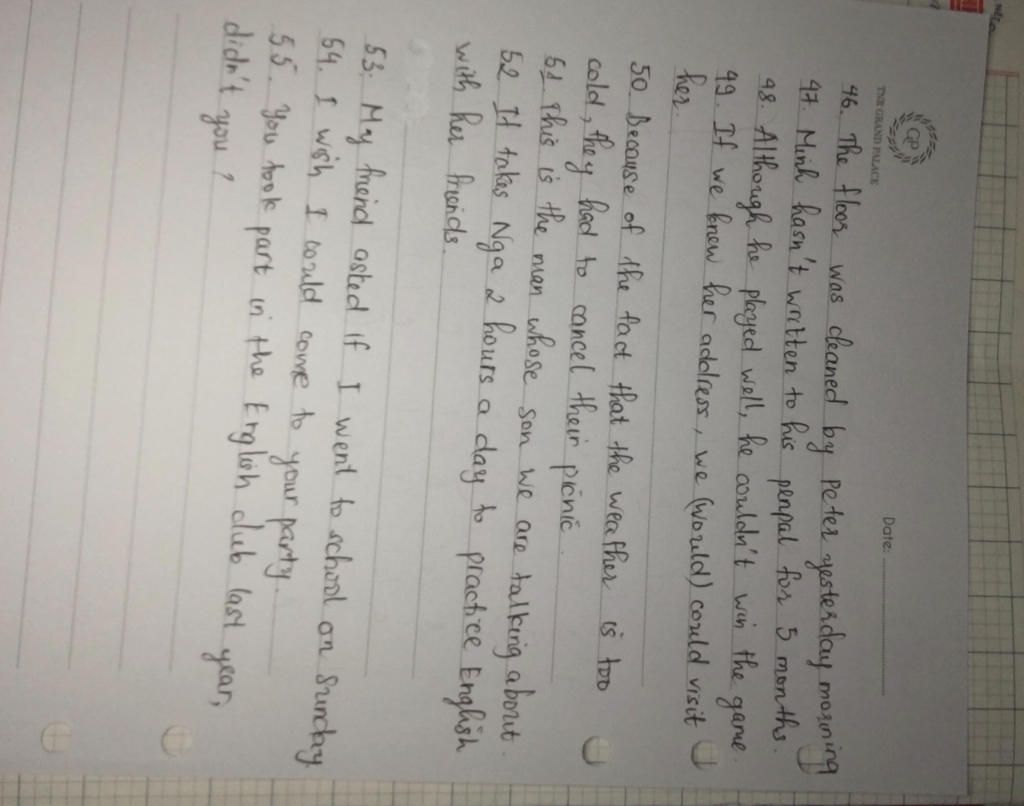 GP
THE GRAND PALACE
Date:
46. The floor was cleaned by Peter yesterday morning
47. Minh hasn't written to his penpal for 5 months.
48. Although he played well, he couldn't win the game.
49. If we knew her address, we (would) could visit
her.
50. Because of the fact that the weather is too
cold, they had to cancel their picnic.
51. This is the men whose son we are talking about.
52. It takes Nga 2 hours a day to practice English
with her friends.
53. My friend asked if I went to school on Sunday
54. I wish I could come to your party.
55. You took part in the English club last year,
didn't you?